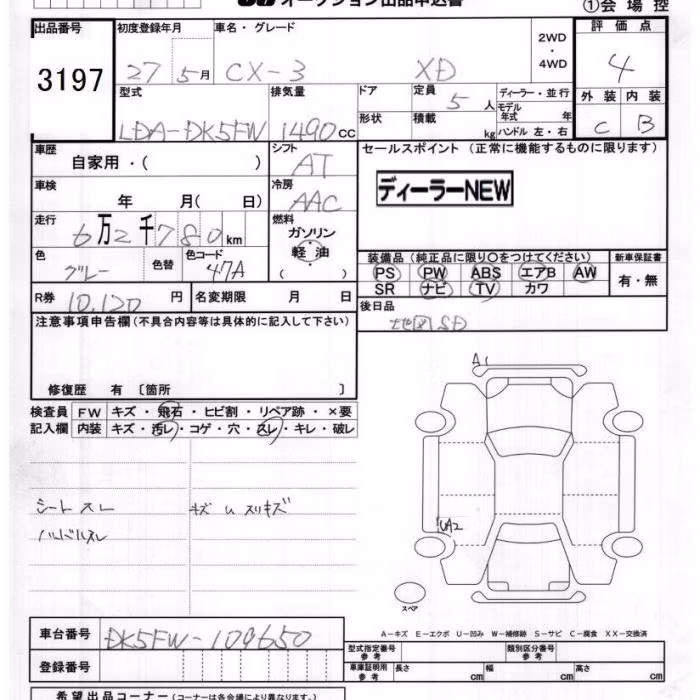 オークション出品申込書
①会場控
出品番号 初度登録年月 車名・グレード 2WD・4WD 評価点
3197 27 5月 CX-3 XD 4
型式 排気量 ドア 定員 5人 ディーラー・並行 外装 内装
LDA-DK5FW 1490cc 形状 積載 kg モデル年式 年 ハンドル 左・右 C B
車歴 自家用・( ) シフト AT セールスポイント (正常に機能するものに限ります)
車検 年 月( 日) 冷房 AAC ディーラーNEW
走行 6万2千780km 燃料 ガソリン 軽油 ( )
色 グレー 色替 色コード 47A
装備品 (純正品に限り○をつけてください) 新車保証書
PS PW ABS エアB AW 有・無
SR ナビ TV カワ
R券 10,120円 名変期限 月 日 後日品
地図SD
注意事項申告欄 (不具合内容等は具体的に記入して下さい)
修復歴 有 [箇所 ]
A1
検査員 FW キズ・飛石・ヒビ割・リペア跡・×要
記入欄 内装 キズ・汚レ・コゲ・穴・スレ・キレ・破レ
シートスレ キズ U スリキズ
ハンドルスレ
UA2
スペア
A-キズ E-エクボ U-凹み W-補修跡 S-サビ C-腐食 XX-交換済
車台番号 DK5FW-109650
型式指定番号 参考 類別区分番号 参考
登録番号 車庫証明用 参考 長さ cm 幅 cm 高さ cm
希望出品コーナー (コーナーは各会場により異なります。)